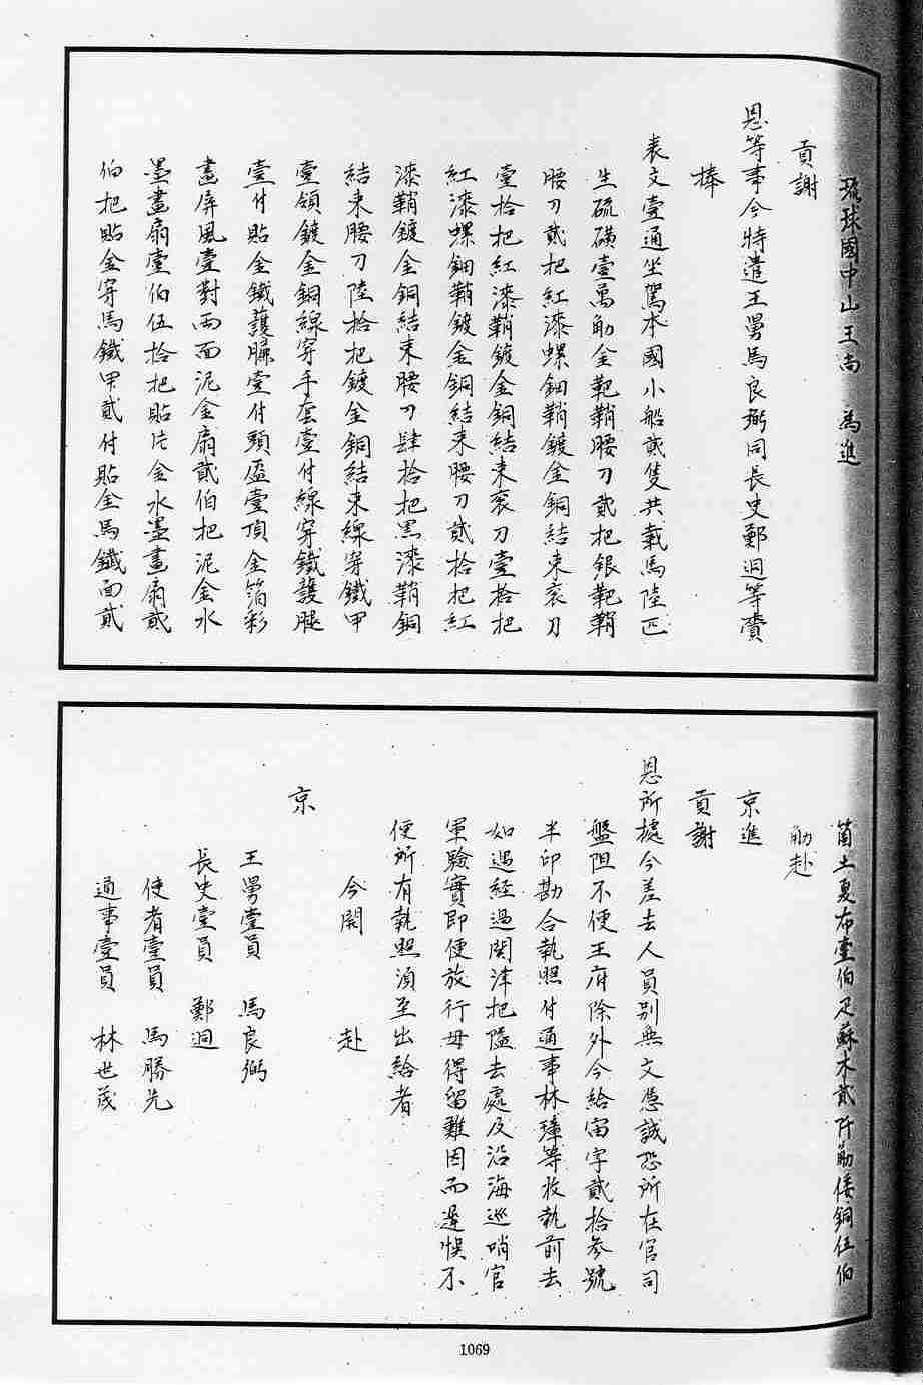 琉球國中山王尚　為進
貢謝
恩等事今特遣王舅馬良弼同長史鄭迵等賫
捧
表文壹通坐駕本國小船貳隻共載馬陸匹
生硫磺壹萬觔金靶鞘腰刀貳把銀靶鞘
腰刀貳把紅漆螺鈿鞘鍍金銅結束衮刀
壹拾把紅漆鞘鍍金銅結束衮刀壹拾把
紅漆螺鈿鞘鍍金銅結束腰刀貳拾把紅
漆鞘鍍金銅結束腰刀肆拾把黑漆鞘銅
結束腰刀陸拾把鍍金銅結束線穿鐵甲
壹領鍍金銅線穿手套壹付線穿鐵護腿
壹付貼金鐵護臁壹付頭盔壹頂金箔彩
畫屏風壹對兩面泥金扇貳伯把泥金水
墨畫扇壹伯伍拾把貼片金水墨畫扇貳
伯把貼金穿馬鐵甲貳付貼金馬鐵面貳
箇土夏布壹伯疋蘇木貳阡觔倭銅伍伯
觔赴
京進
貢謝
恩所據今差去人員別無文憑誠恐所在官司
盤阻不便王府除外今給宙字貳拾參號
半印勘合執照付通事林璋等收執前去
如遇經過関津把隘去處及沿海巡哨官
軍驗實即便放行毋得留難因而遲悞不
便所有執照湏至出給者
今開　赴
京
王舅壹員　馬良弼
長史壹員　鄭迵
使者壹員　馬勝先
通事壹員　林世茂
1069